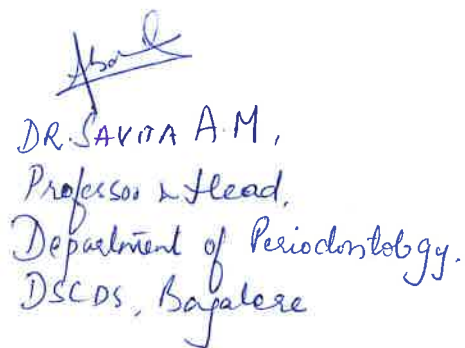 DR. SAVITA A.M,
Professor & Head,
Department of Periodontology.
DSCDS, Bagalore